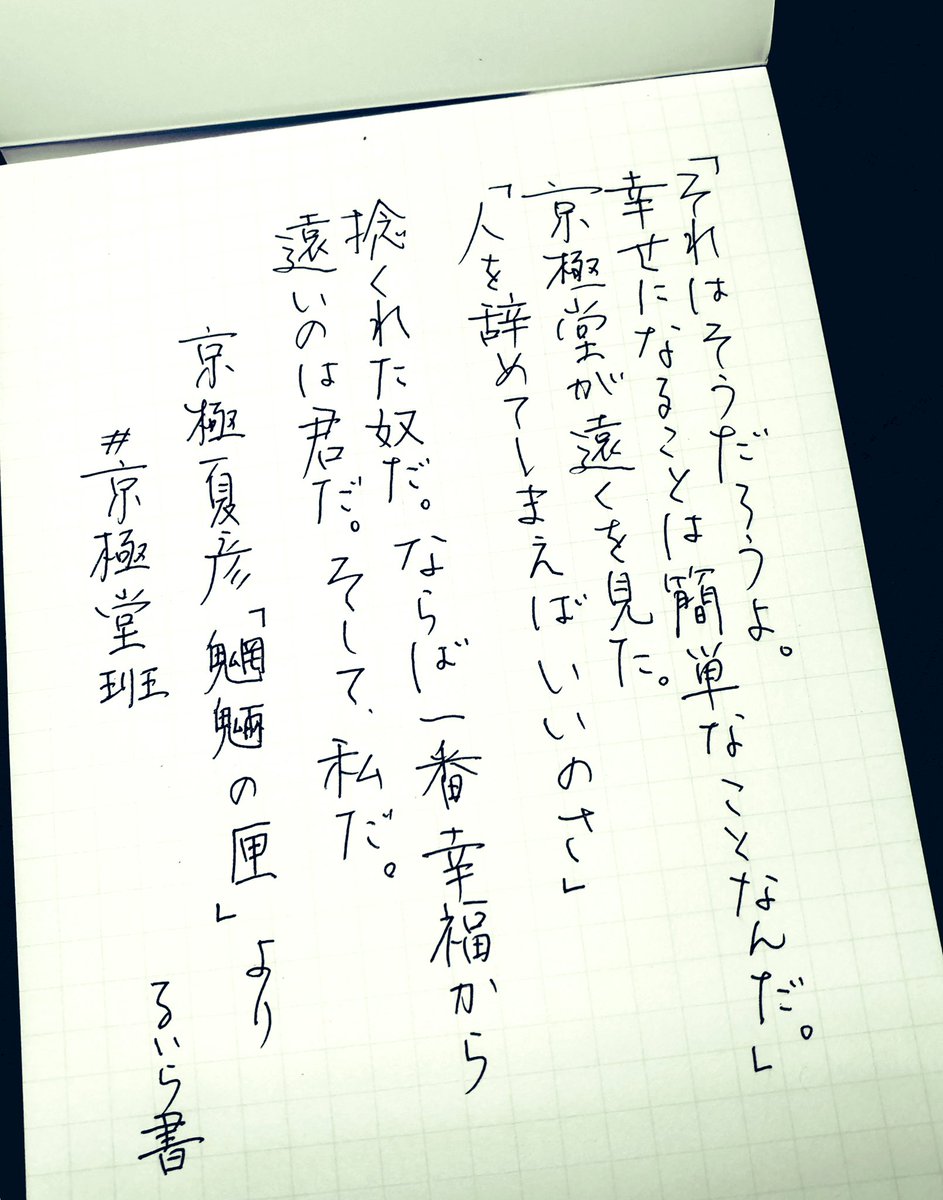 「それはそうだろうよ。
幸せになることは簡単なことなんだ。」
京極堂が遠くを見た。
「人を辞めてしまえばいいのさ」
捻くれた奴だ。ならば一番幸福から
遠いのは君だ。そして、私だ。
京極夏彦「魍魎の匣」より
#京極堂班
るいら書